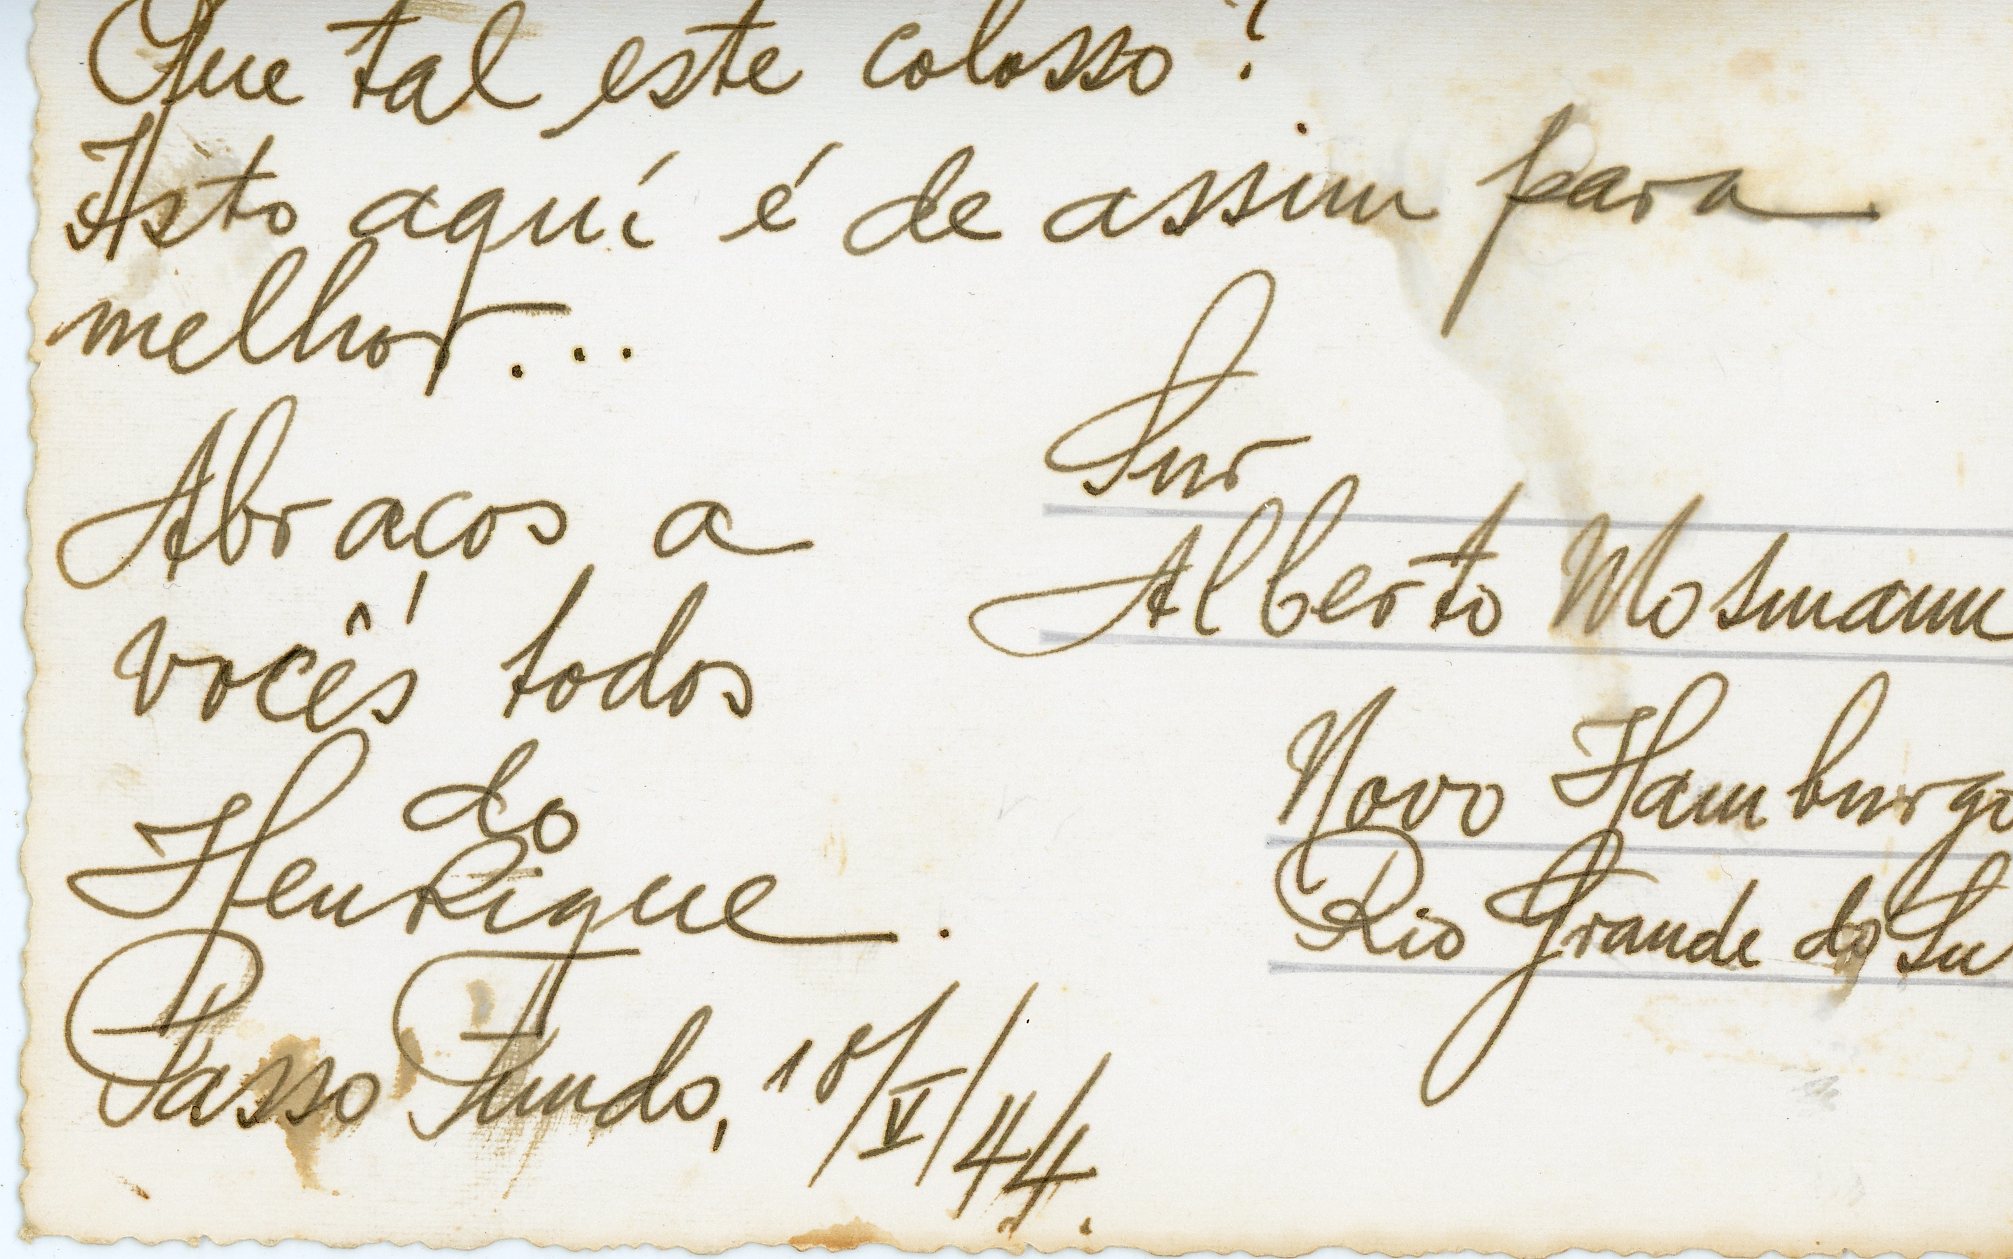 Que tal este colosso?
Isto aquí é de assim para
melhor...
Abraços a
vocês todos
do
Henrique.
Passo Fundo, 18/V/44.
Snr
Alberto Mosmann
Novo Hamburgo
Rio Grande do Su